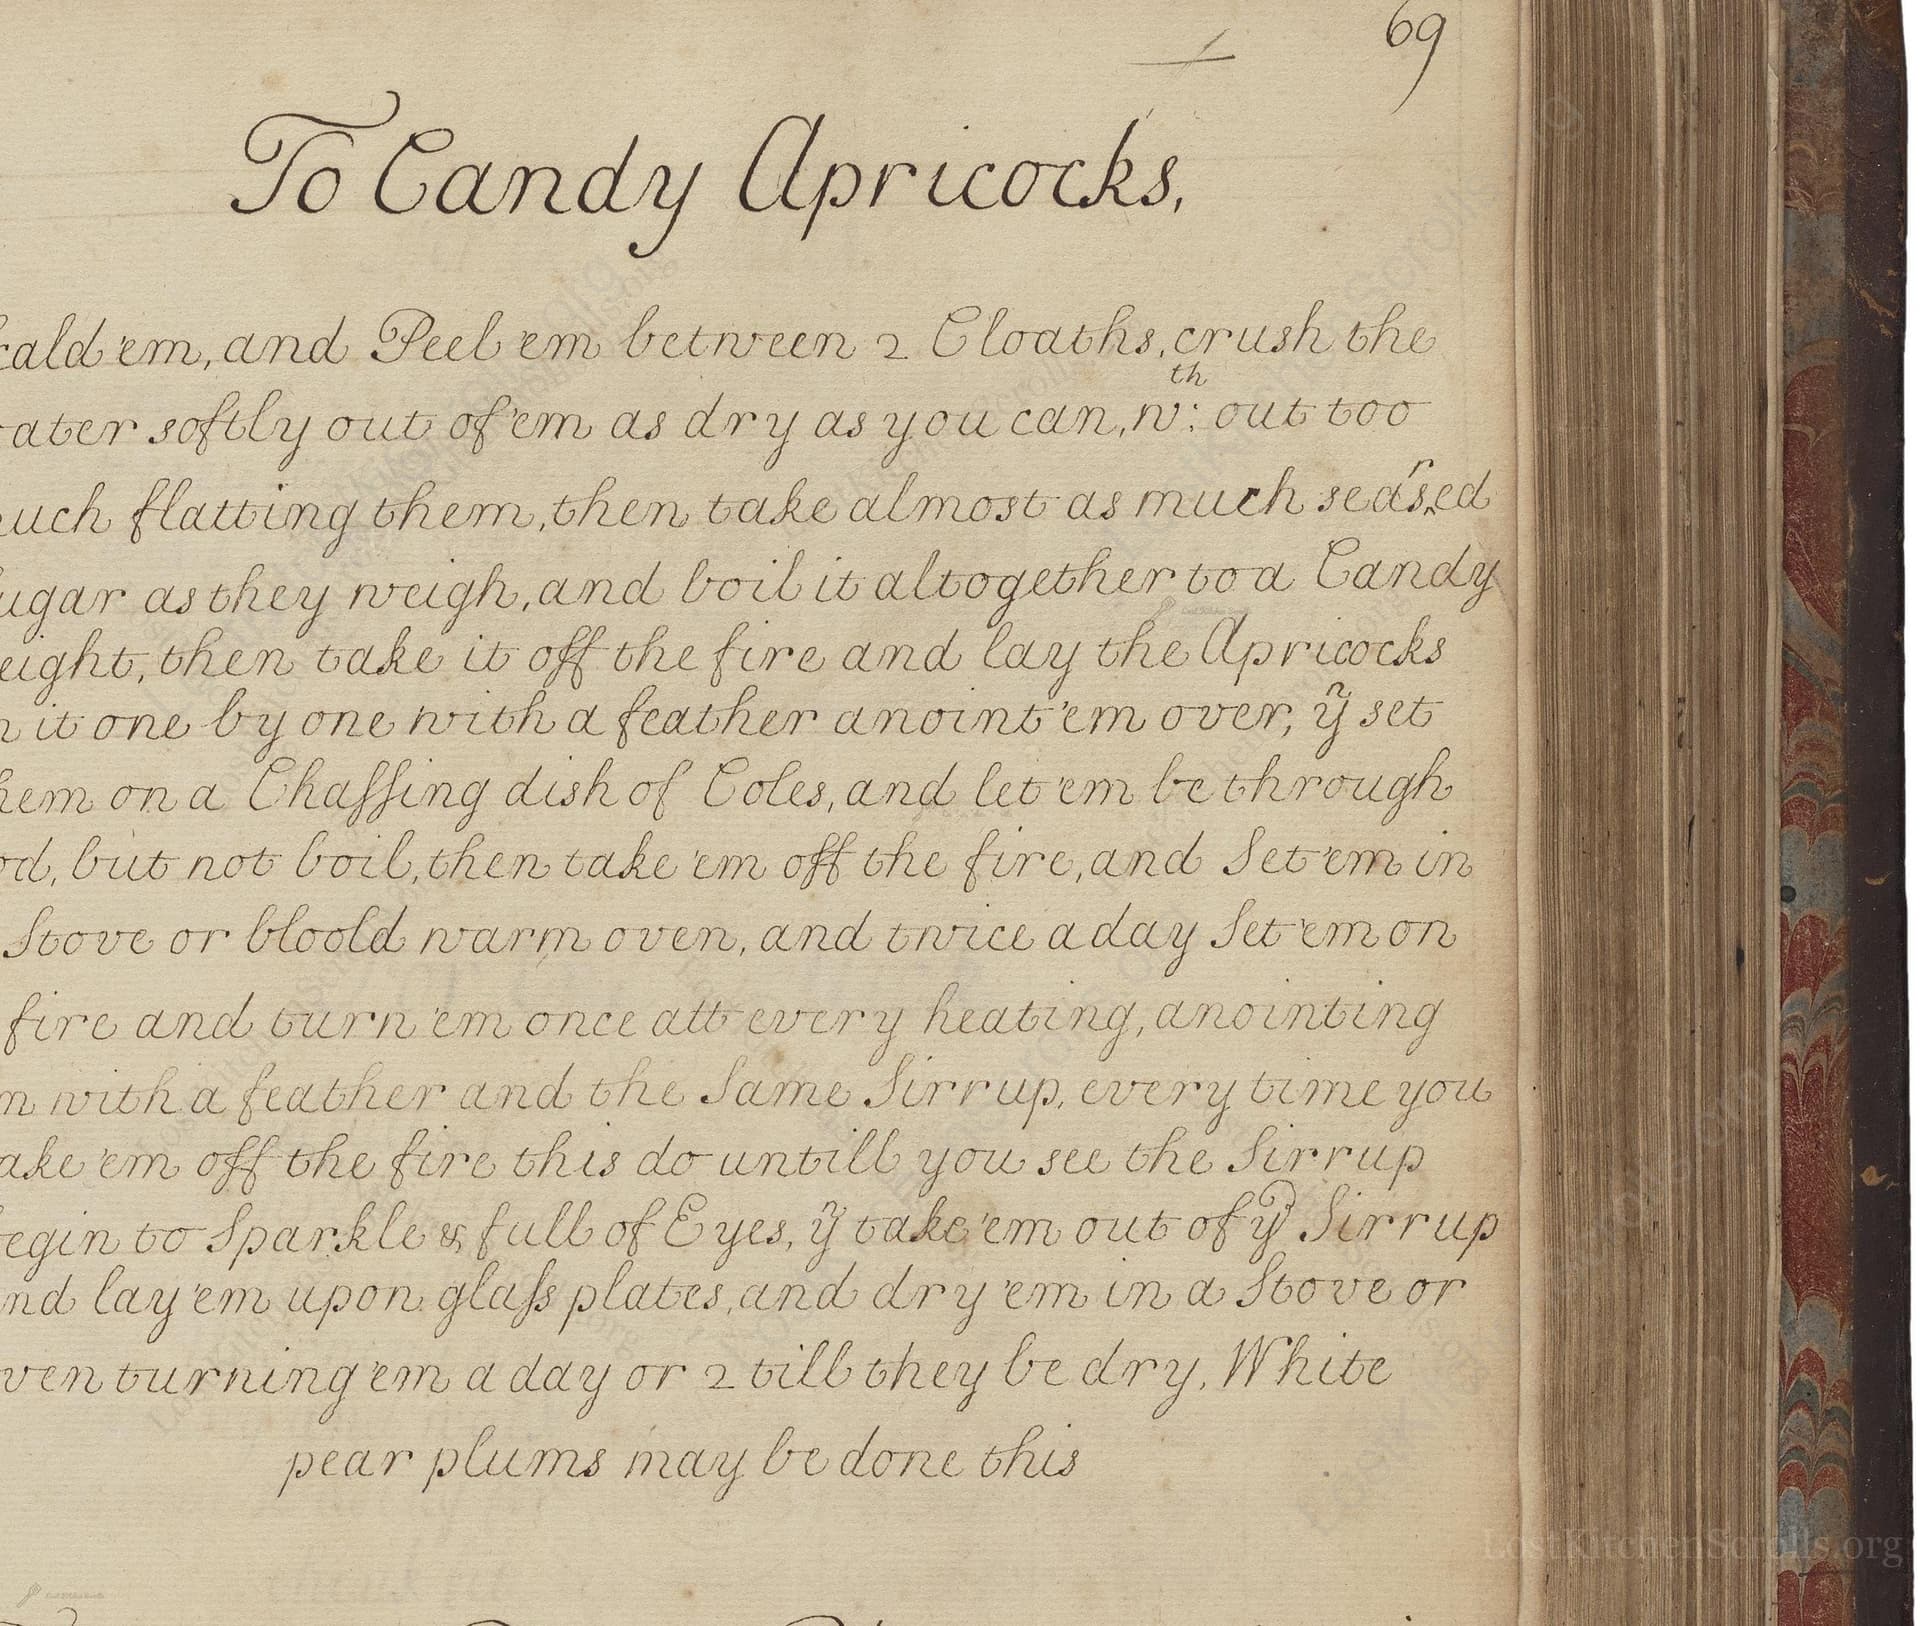 69
To Candy Apricocks,
cald 'em, and Peel 'em between 2 Cloaths, crush the
ater softly out of 'em as dry as you can, wth: out too
uch flatting them, then take almost as much searsed
ugar as they weigh, and boil it altogether to a Candy
eight, then take it off the fire and lay the Apricocks
n it one by one with a feather anoint 'em over, yn set
hem on a Chaſſing dish of Coles, and let 'em be through
od, but not boil, then take 'em off the fire, and Set 'em in
Stove or bloold warm oven, and twice a day Set 'em on
fire and turn 'em once att every heating, anointing
m with a feather and the Same Sirrup, every time you
ake 'em off the fire this do untill you see the Sirrup
egin to Sparkle & full of Eyes, yn take 'em out of ye Sirrup
nd lay 'em upon glaſs plates, and dry 'em in a Stove or
ven turning 'em a day or 2 till they be dry, White
pear plums may be done this
LostKitchenScrolls.org